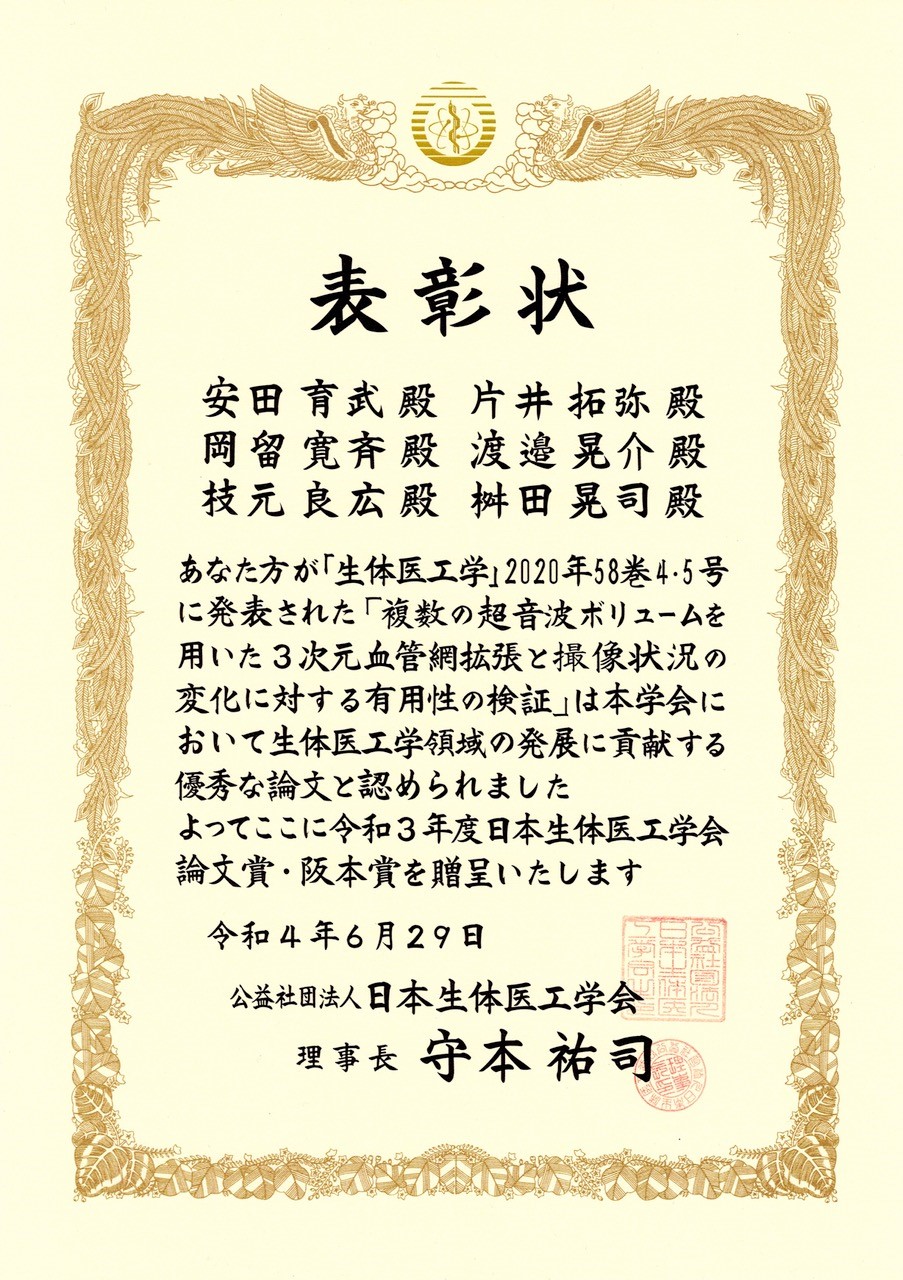 表彰状
安田育武殿 片井拓弥殿
岡留寛斉殿 渡邉晃介殿
枝元良広殿 桝田晃司殿
あなた方が「生体医工学」2020年58巻4・5号
に発表された「複数の超音波ボリュームを
用いた3次元血管網拡張と撮像状況の
変化に対する有用性の検証」は本学会に
おいて生体医工学領域の発展に貢献する
優秀な論文と認められました
よってここに令和3年度日本生体医工学会
論文賞・阪本賞を贈呈いたします
令和4年6月29日
公益社団法人日本生体医工学会
理事長 守本祐司